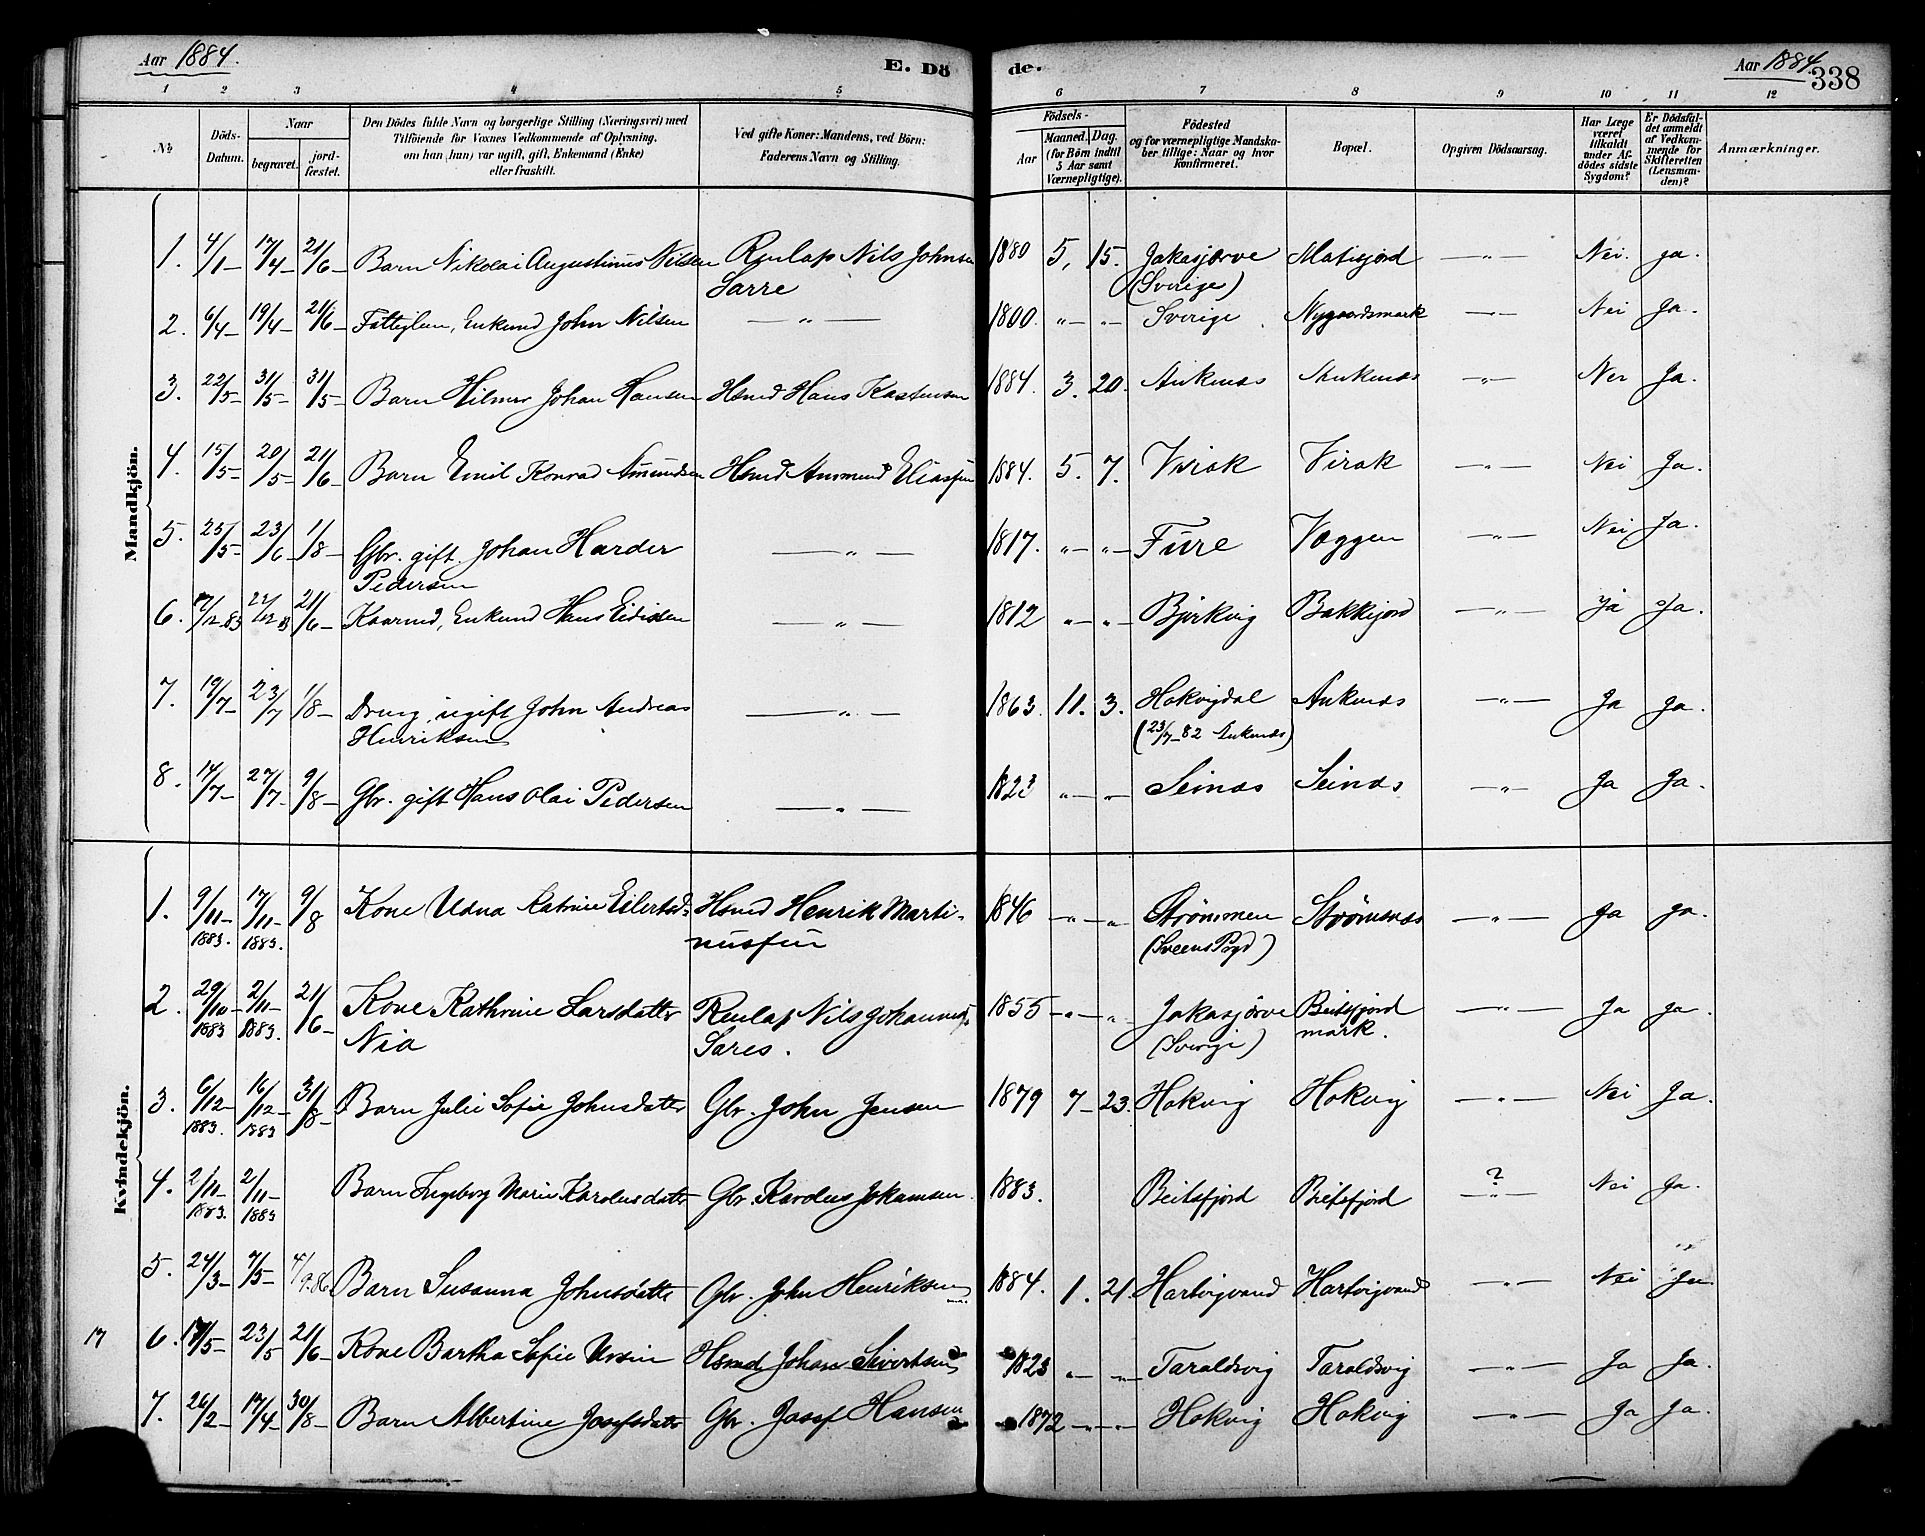 Aar 1884.
E. Dö
de.
Aar 1884.
338
1 2 3 4 5 6 7 8 9 10 11 12
No.
Döds-Datum.
Naar
begravet.
jord-fæstet.
Den Dödes fulde Navn og borgerlige Stilling (Næringsvei) med
Tilföiende for Voxnes Vedkommende af Oplysning,
om han (hun) var ugift, gift, Enkemand (Enke)
eller fraskilt.
Ved gifte Koner: Mandens, ved Börn:
Faderens Navn og Stilling.
Födsels-
Aar
Maaned. Dag.
(for Börn indtil
5 Aar samt
Værnepligtige).
Födested
og for værnepligtige Mandska-
ber tillige: Naar og hvor
Konfirmeret.
Bopæl.
Opgiven Dödsaarsag.
Har Læge
været
tilkaldt
under Af-
dödes sidste
Sygdom?
Er Dödsfal-
det anmeldt
af Vedkom-
mende for
Skifteretten
(Lensman-
den)?
Anmærkninger.
Mandkjön.
1. 4/1 17/4 21/6 Barn Nikolai Augustinus Nilsen Renlap Nils Johnsen 1880 5, 15. Jakasjærve Matisjord —„— Nei. ja.
Sarre (Sverige)
2. 6/4 19/4 21/6 Fattiglem, Enkemd John Nilsen —„— 1800. „ „ Sverige Nygaardsmark —„— Nei Ja.
3. 22/5 31/5 31/5 Barn Hilmer Johan Hansen Hsmd Hans Kastensen 1884. 3. 20. Ankenæs Ankenæs —„— Nei Ja.
4. 15/5 20/5 21/6 Barn Emil Konrad Amundsen Hsmd Ammund Eliassen 1884. 5. 7. Virak Virak Nei Ja.
5. 25/5 23/6 1/8 Gbr. gift. Johan Harder —„— 1817. „ „ Fure Væggen —„— Nei Ja.
Pedersen
6. 17/12 83 22/12 83 21/6 Kaarmd, Enkemd Hans Eidissen —„— 1812 „ „ Bjerkvig Bakkejord —„— Ja Ja.
7. 19/7 23/7 1/8 Dreng, ugift John Andreas —„— 1863. 11. 3. Hokvigdal Ankenæs —„— Ja Ja.
Henriksen (23/7 82 Ankenæs)
8. 14/7 27/7 9/8 Gbr. gift Hans Olai Pedersen —„— 1823 „ „ Seinæs Seinæs —„— Ja Ja.
Kvindekjön.
1. 9/11 1883. 17/11 1883. 9/8 Kone Udna Katrine Eilertsd. Hsmd Henrik Marti- 1846 „ „ Strømmen Strømsnæs —„— Ja Ja.
nussen
2. 29/10 1883 2/11 1883. 21/6 Kone Kathrine Larsdatter Renlap Nils Johannes. 1855 „ „ Jakasjærve Beitsfjord —„— Ja Ja.
Nia Sares. (Sverige) mark.
3. 6/12 1883. 16/12 1883 31/8 Barn Julie Sofie Johnsdatter Gbr. John Jensen 1879 7 23. Hokvig Hokvig —„— Nei Ja.
4. 2/11 1883. 2/11 1883 Barn Ingeborg Marie Karolusdatter Gbr. Karolus Johansen. 1883. Beitsfjord Beitsfjord ? —„— Nei Ja.
5. 24/3 7/5 4/9 86 Barn Susanna Johnsdatter Gbr. John Henriksen 1884. 1. 21. Hartvigvand Hartvigvand —„— Nei Ja
17 6. 17/5 23/5 21/6 Kone Bartha Sofie Ursin Hsmd Johan Sivertsen 1823 „ „ Taraldsvig Taraldsvig —„— Ja Ja.
7. 26/2 17/4 30/8 Barn Albertine Josefsdatter Gbr. Josef Hansen 1872 „ „ Hokvig Hokvig —„— Ja Ja.